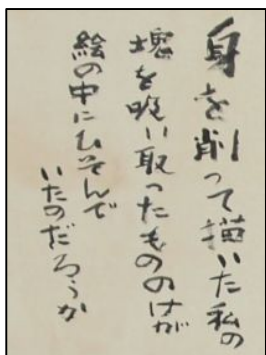 身を削って描いた私の
塊を吸い取ったもののけが
絵の中にひそんで
いたのだろうか